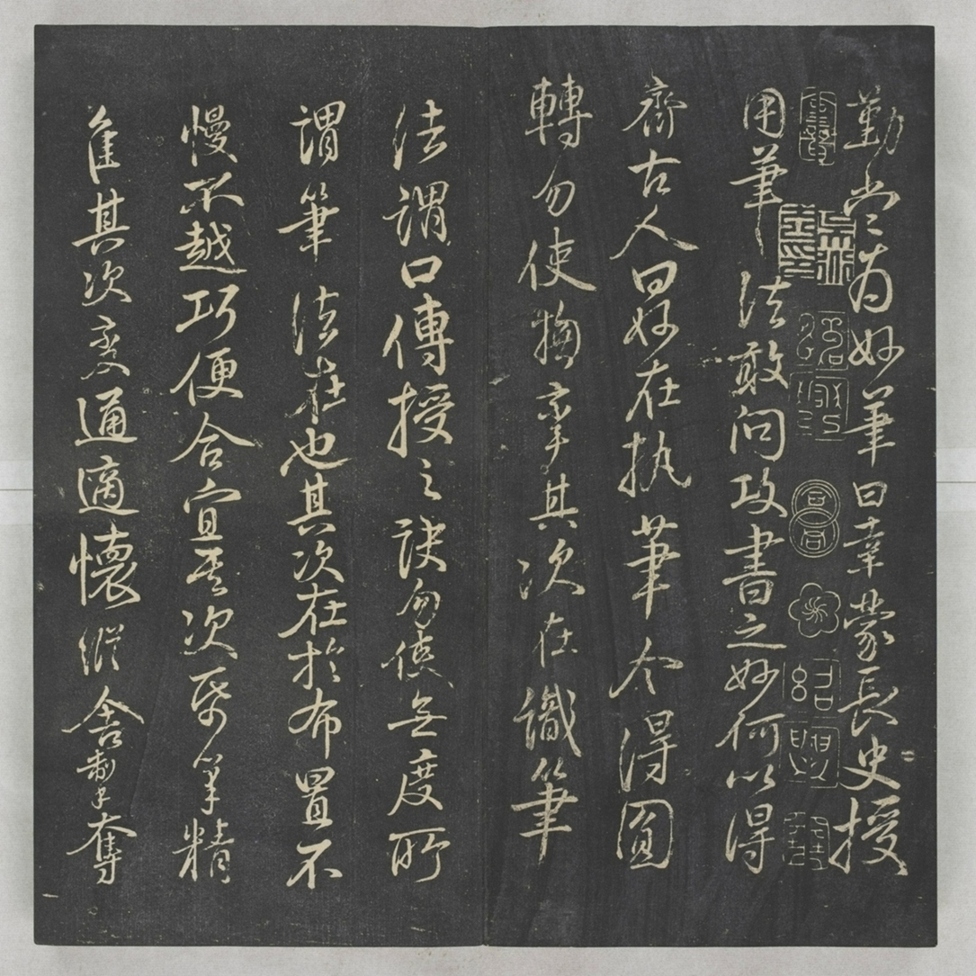 勤當為妙筆曰幸蒙長史授
用筆法敢問攻書之妙何以得
齊古人曰妙在執筆令得圓
轉勿使拘攣其次在識筆
法謂口傳授之訣勿使無度所
謂筆法在也其次在於布置不
慢不越巧便合宜其次紙筆精
佳其次變通適懷縱舍掣奪
紹興